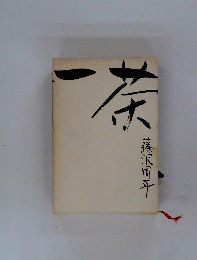 一茶
藤沢周平